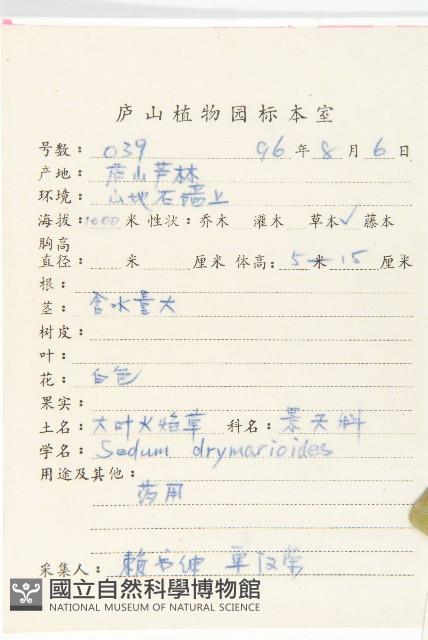 庐山植物园标本室
号数: 039 96年8月6日
产地: 庐山芦林
环境: 山地石墙上
海拔: 1000米 性状: 乔木 灌木 草本✓ 藤本
胸高
直径: 米 厘米 体高: 5米15厘米
根:
茎: 含水量大
树皮:
叶:
花: 白色
果实:
土名: 大叶火焰草 科名: 景天科
学名: Sedum drymarioides
用途及其他:
药用
采集人: 赖书绅 单汉荣
國立自然科學博物館
NATIONAL MUSEUM OF NATURAL SCIENCE